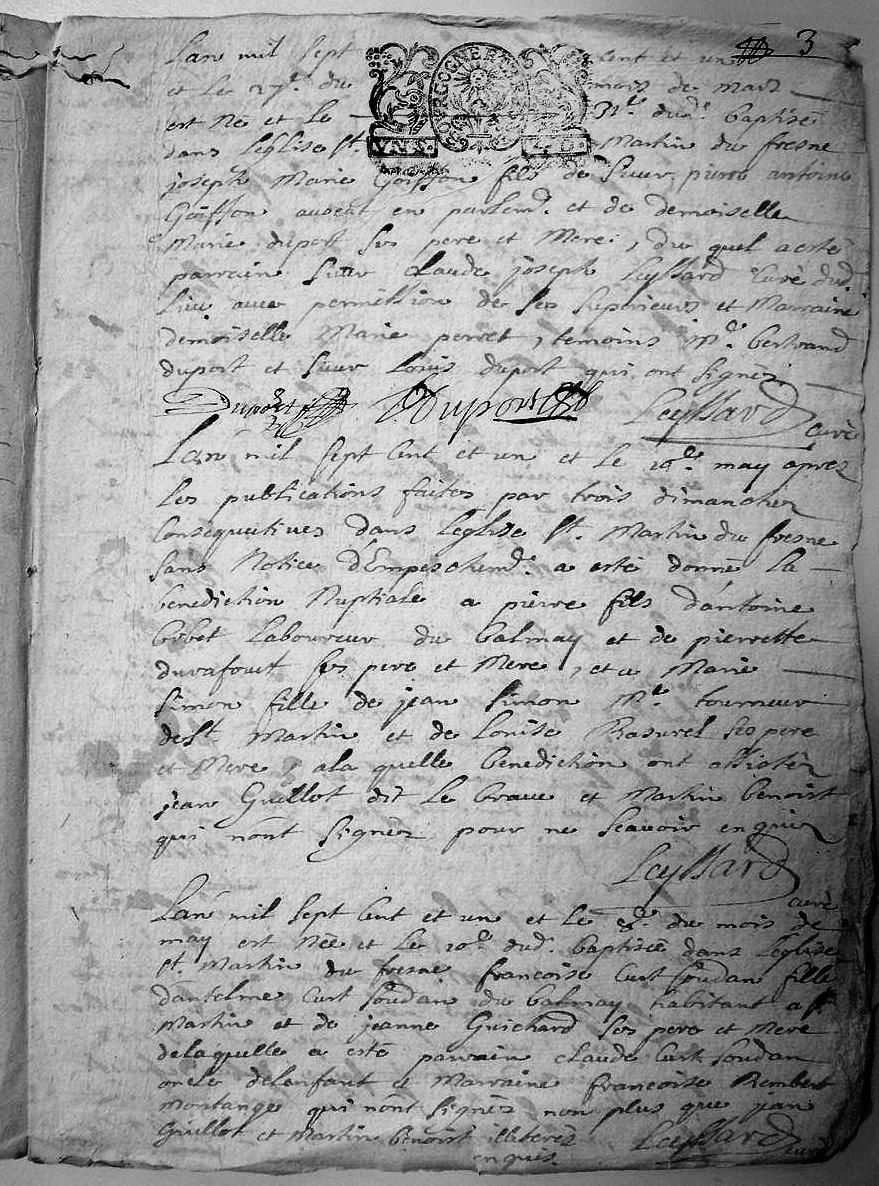 3
Lan mil sept cent et un
et le 27e. du mois de mars
est né et le 31e. dud. baptisé
dans leglise st Martin du fresne
joseph Marie Goiffon fils de sieur pierre antoine
Goiffon avocat en parlemt. et de demoiselle
Marie duport ses pere et Mere, du quel a esté
parrain sieur claude joseph Leyssard Curé dud.
lieu avec permission de ses superieurs et Marraine
demoiselle Marie perret, temoins Mr. bertrand
duport et sieur Louis duport qui ont signé.
Duport Duport Leyssard curé
Lan mil sept cent et un et le 10e. may apres
les publications faites par trois dimanches
Consequutives dans leglise st. Martin du fresne
sans Notice d'Empeschemt. a esté donné la
benediction Nuptiale a pierre fils d'antoine
bobet Laboureur du balmay et de pierrette
durafout ses pere et Mere, et a Marie
simon fille de jean simon Me. tourneur
de st Martin et de Louise Rasurel ses pere
et Mere, a la quelle benediction ont assistés
jean Guillot dit Le brave et Martin benoist
qui n'ont signés pour ne scavoir enquis
Leyssard
curé
Lan mil sept cent et un et le 8e. du mois de
may est Née et le 10e dud. baptisée dans leglise
st. Martin du fresne francoise Curt soudan fille
dantelme Curt soudan du balmay habitant a st
Martin et de jeanne Guichard ses pere et Mere
de laquelle a esté parrain claude Curt soudan
oncle delenfant et Marraine francoise Rembert
montange qui n'ont signés non plus que jean
Guillot et Martin benoist illiterés Leyssard curé
enquis